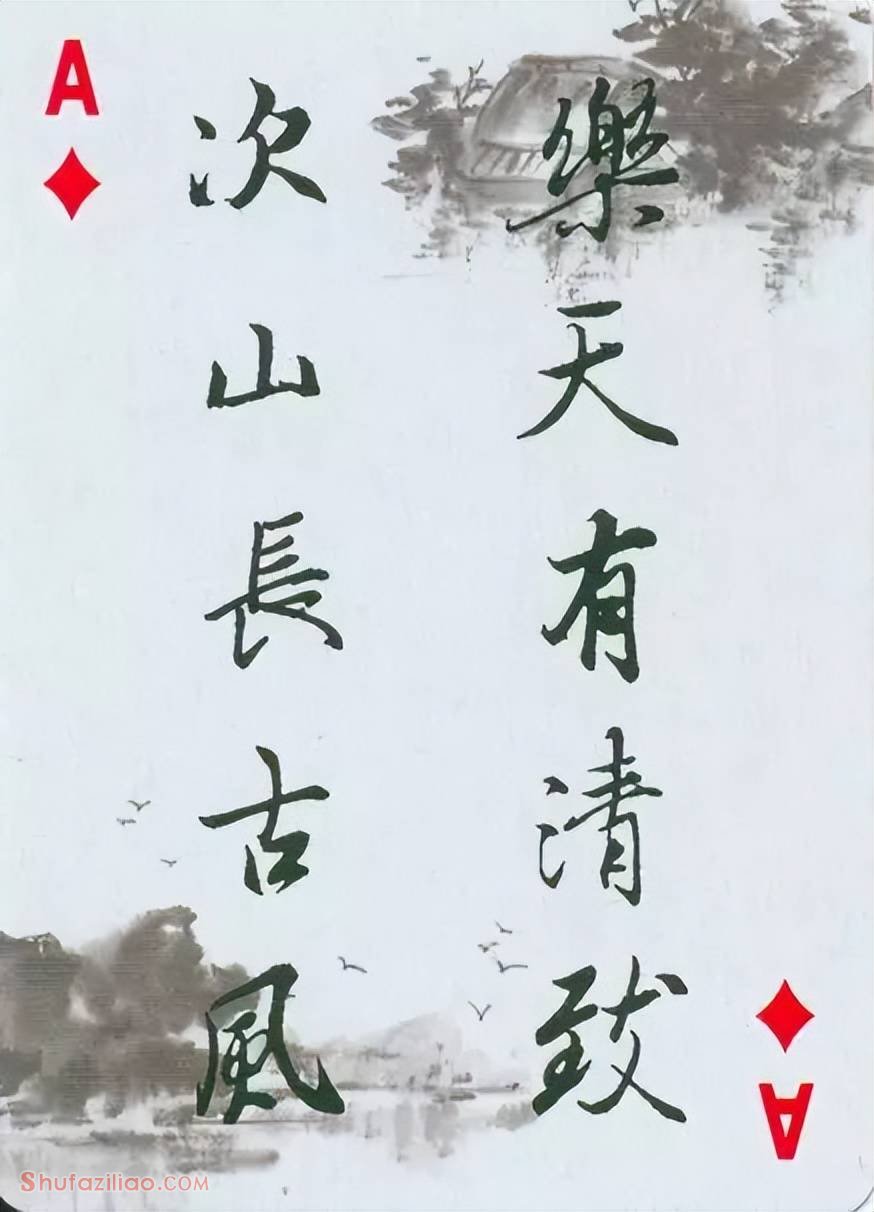 A
樂天有清致
次山長古風
A
Shufaziliao.COM